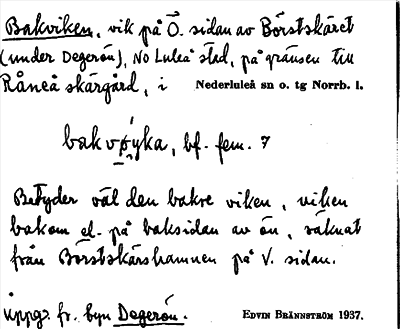 Bakviken, vik på Ö. sidan av Börstskäret
(under Degerön), NO Luleå stad, på gränsen till
Råneå skärgård, i Nederluleå sn o. tg Norrb. l.
bakvøyka, bf. fem. 7
Betyder väl den bakre viken, viken
bakom el. på baksidan av ön, räknat
från Börstskärshamnen på V. sidan.
Uppgs. fr. byn Degerön.
EDVIN BRÄNNSTRÖM 1937.